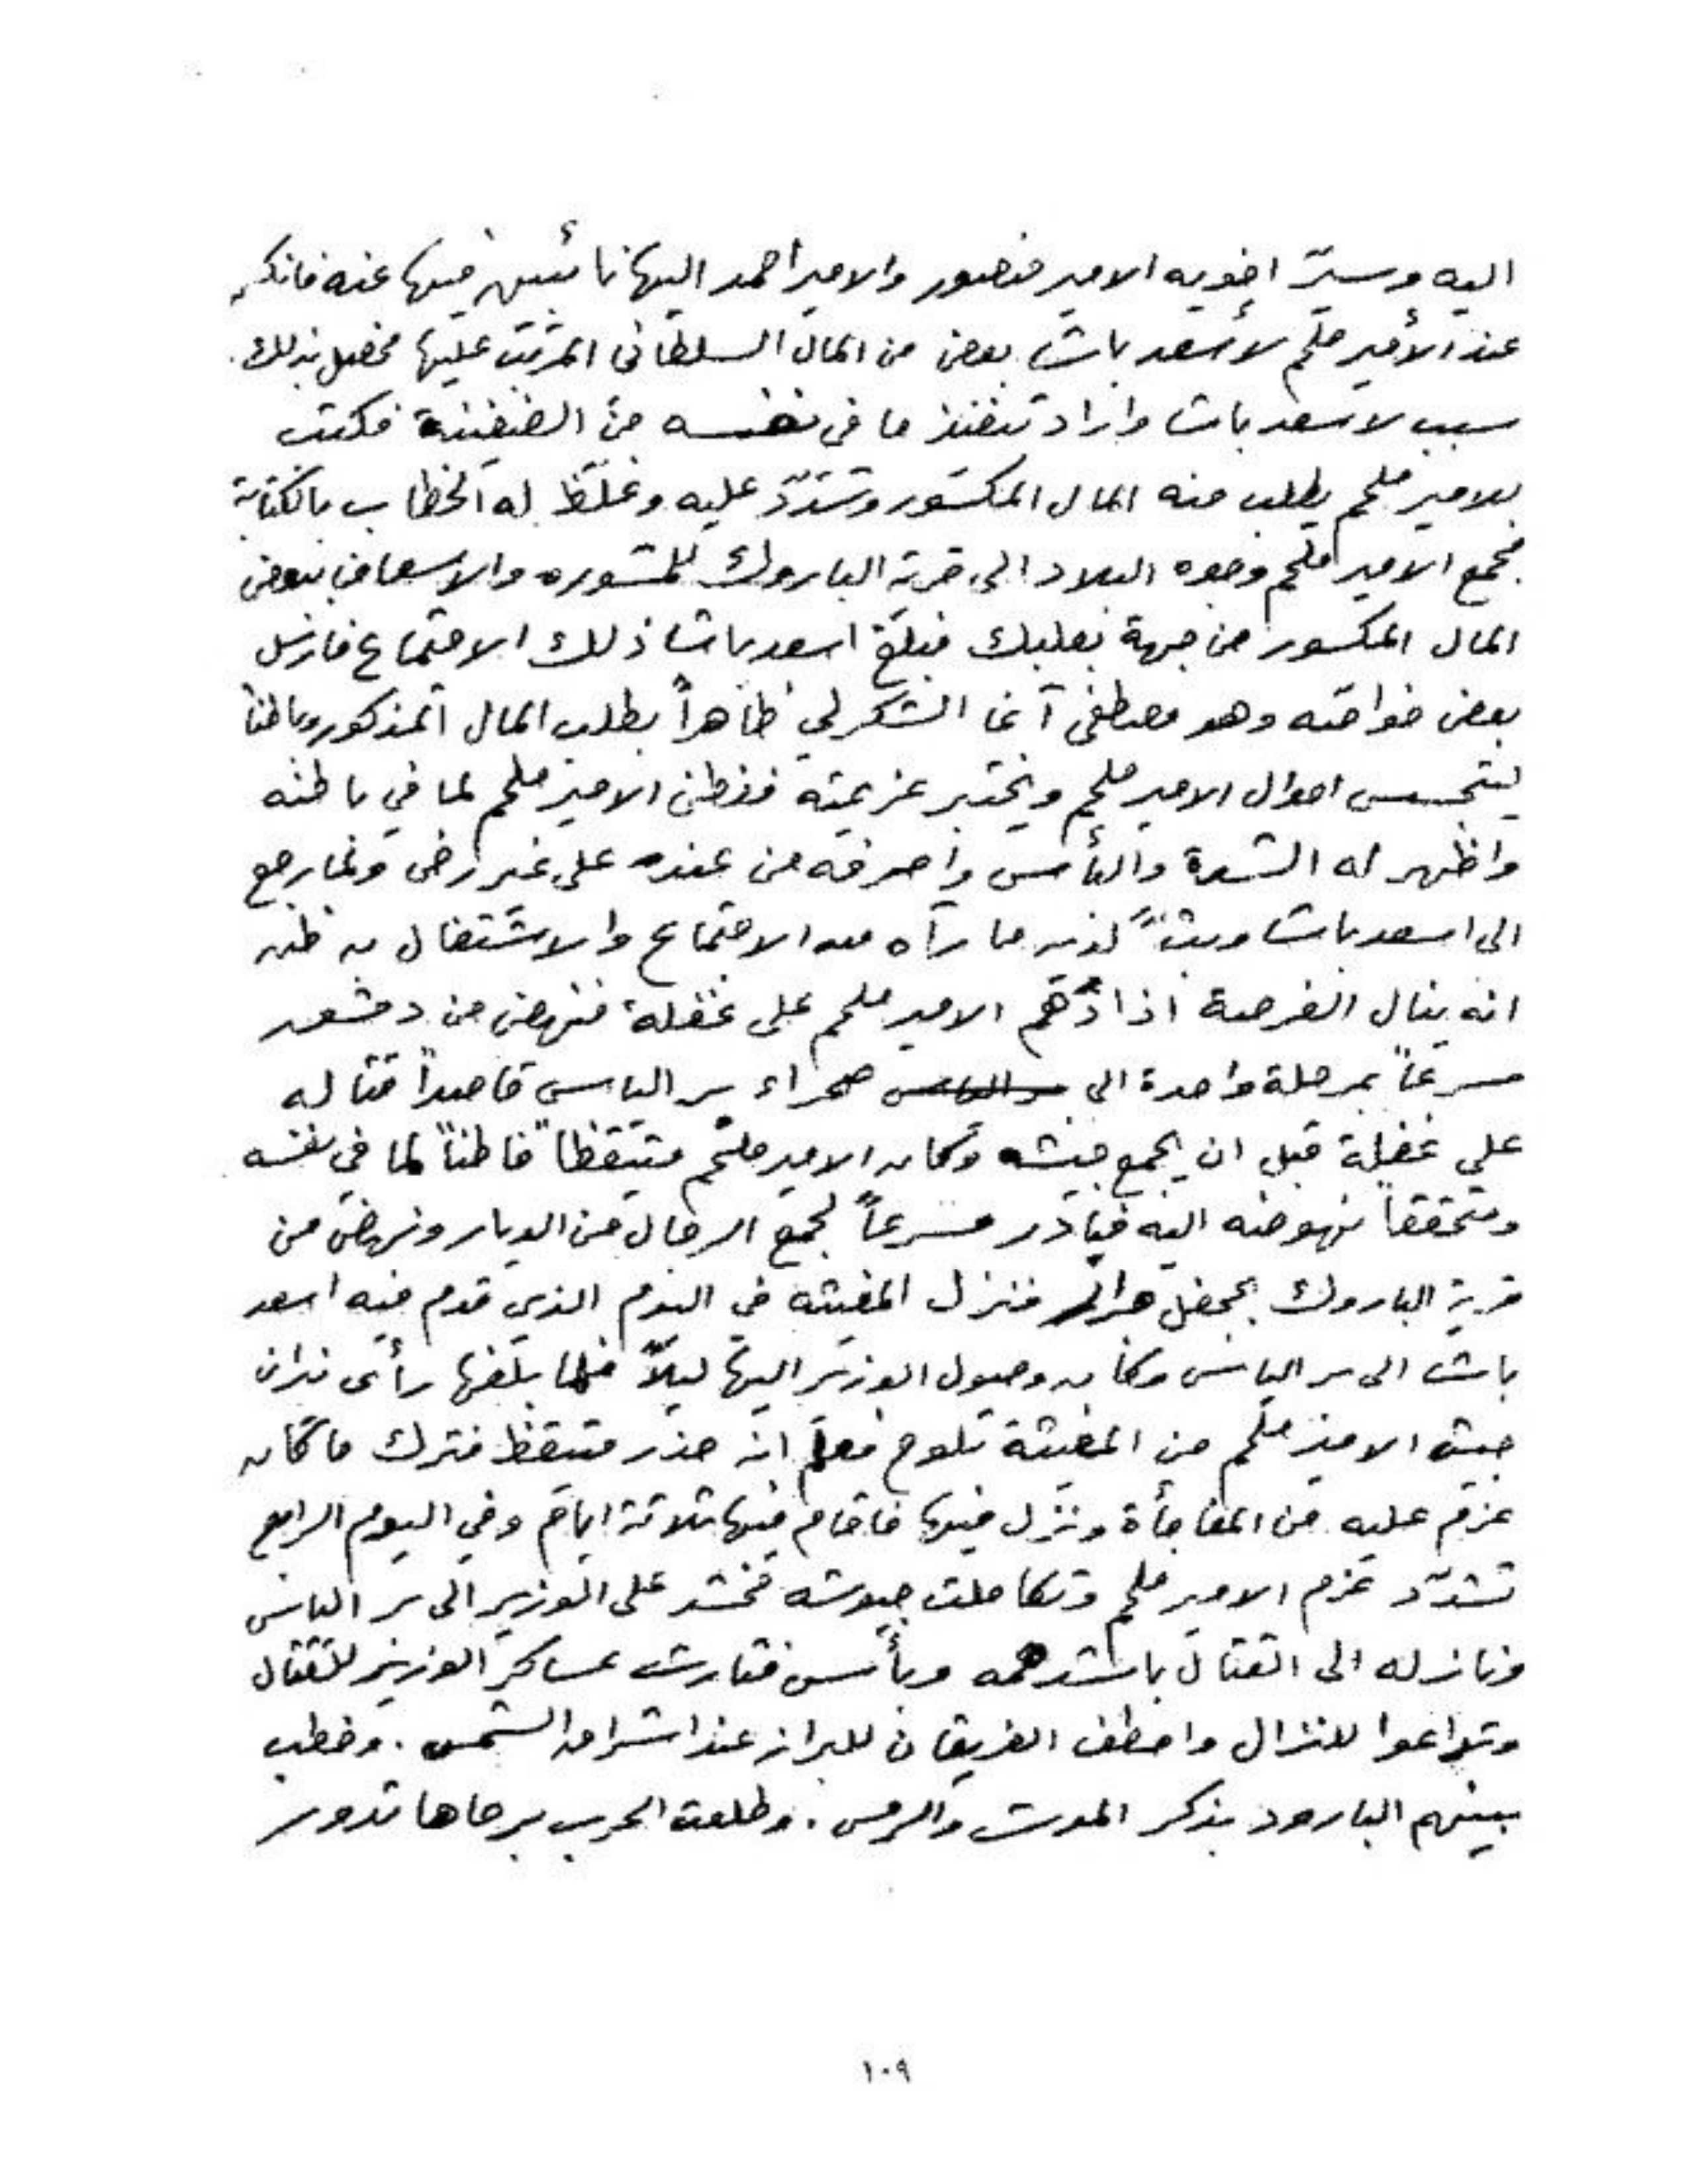 اليه وسيّر اخويه الامير منصور والامير احمد اليها نائبين فيها عنه فانكسر
عند الأمير ملحم لأسعد باشا بعض من المال السلطاني المرتب عليها فحصل بذلك
سبب لاسعد باشا واراد تنفيذ ما في نفسه من الضغينة فكتب
للامير ملحم يطلب منه المال المكسور وشدّد عليه وغلّظ له الخطاب بالكتابة
فجمع الامير ملحم وجوه البلاد الى قرية الباروك للمشوره والاسعاف ببعض
المال المكسور من جهة بعلبك فبلغ اسعد باشا ذلك الاجتماع فارسل
بعض خواصه وهو مصطفى آغا الشكرلي ظاهراً بطلب المال المذكور وباطناً
ليتجسس احوال الامير ملحم ويختبر عزيمته ففطن الامير ملحم لما في باطنه
واظهر له الشدة والبأس واصرفه من عنده على غير رضى ولما رجع
الى اسعد باشا وبثّ لديه ما رآه من الاجتماع والاشتغال به ظن
انه ينال الفرصة اذا دهم الامير ملحم على غفلة فنهض من دمشق
مسرعاً بمرحلة واحدة الى صحراء بر الياس قاصداً قتاله
على غفلة قبل ان يجمع جيشه وكان الامير ملحم متيقظاً فاطناً لما في نفسه
ومتحققاً نهوضه اليه فبادر مسرعاً لجمع الرجال من الديار ونهض من
قرية الباروك بجحفل جرار فنزل المغيثه في اليوم الذي قدم فيه اسعد
باشا الى بر الياس وكان وصول الوزير اليها ليلاً فلما بلغها رأى نيران
جيش الامير ملحم من المغيثة تلوح فعلم انه حذر متيقظ فترك ما كان
عزم عليه من المفاجأة ونزل فيها فاقام فيها ثلاثة ايام وفي اليوم الرابع
تشدّد عزم الامير ملحم وتكاملت جيوشه فحشد على الوزير الى بر الياس
ونازله الى القتال باشد همه وبأس فثارت عساكر الوزير للقتال
وتداعوا للنزال واصطف الفريقان للبراز عند اشراق الشمس . وخطب
بينهم البارود بذكر الموت والرمس . وطلعت الحرب برحاها تدور
١٠٩